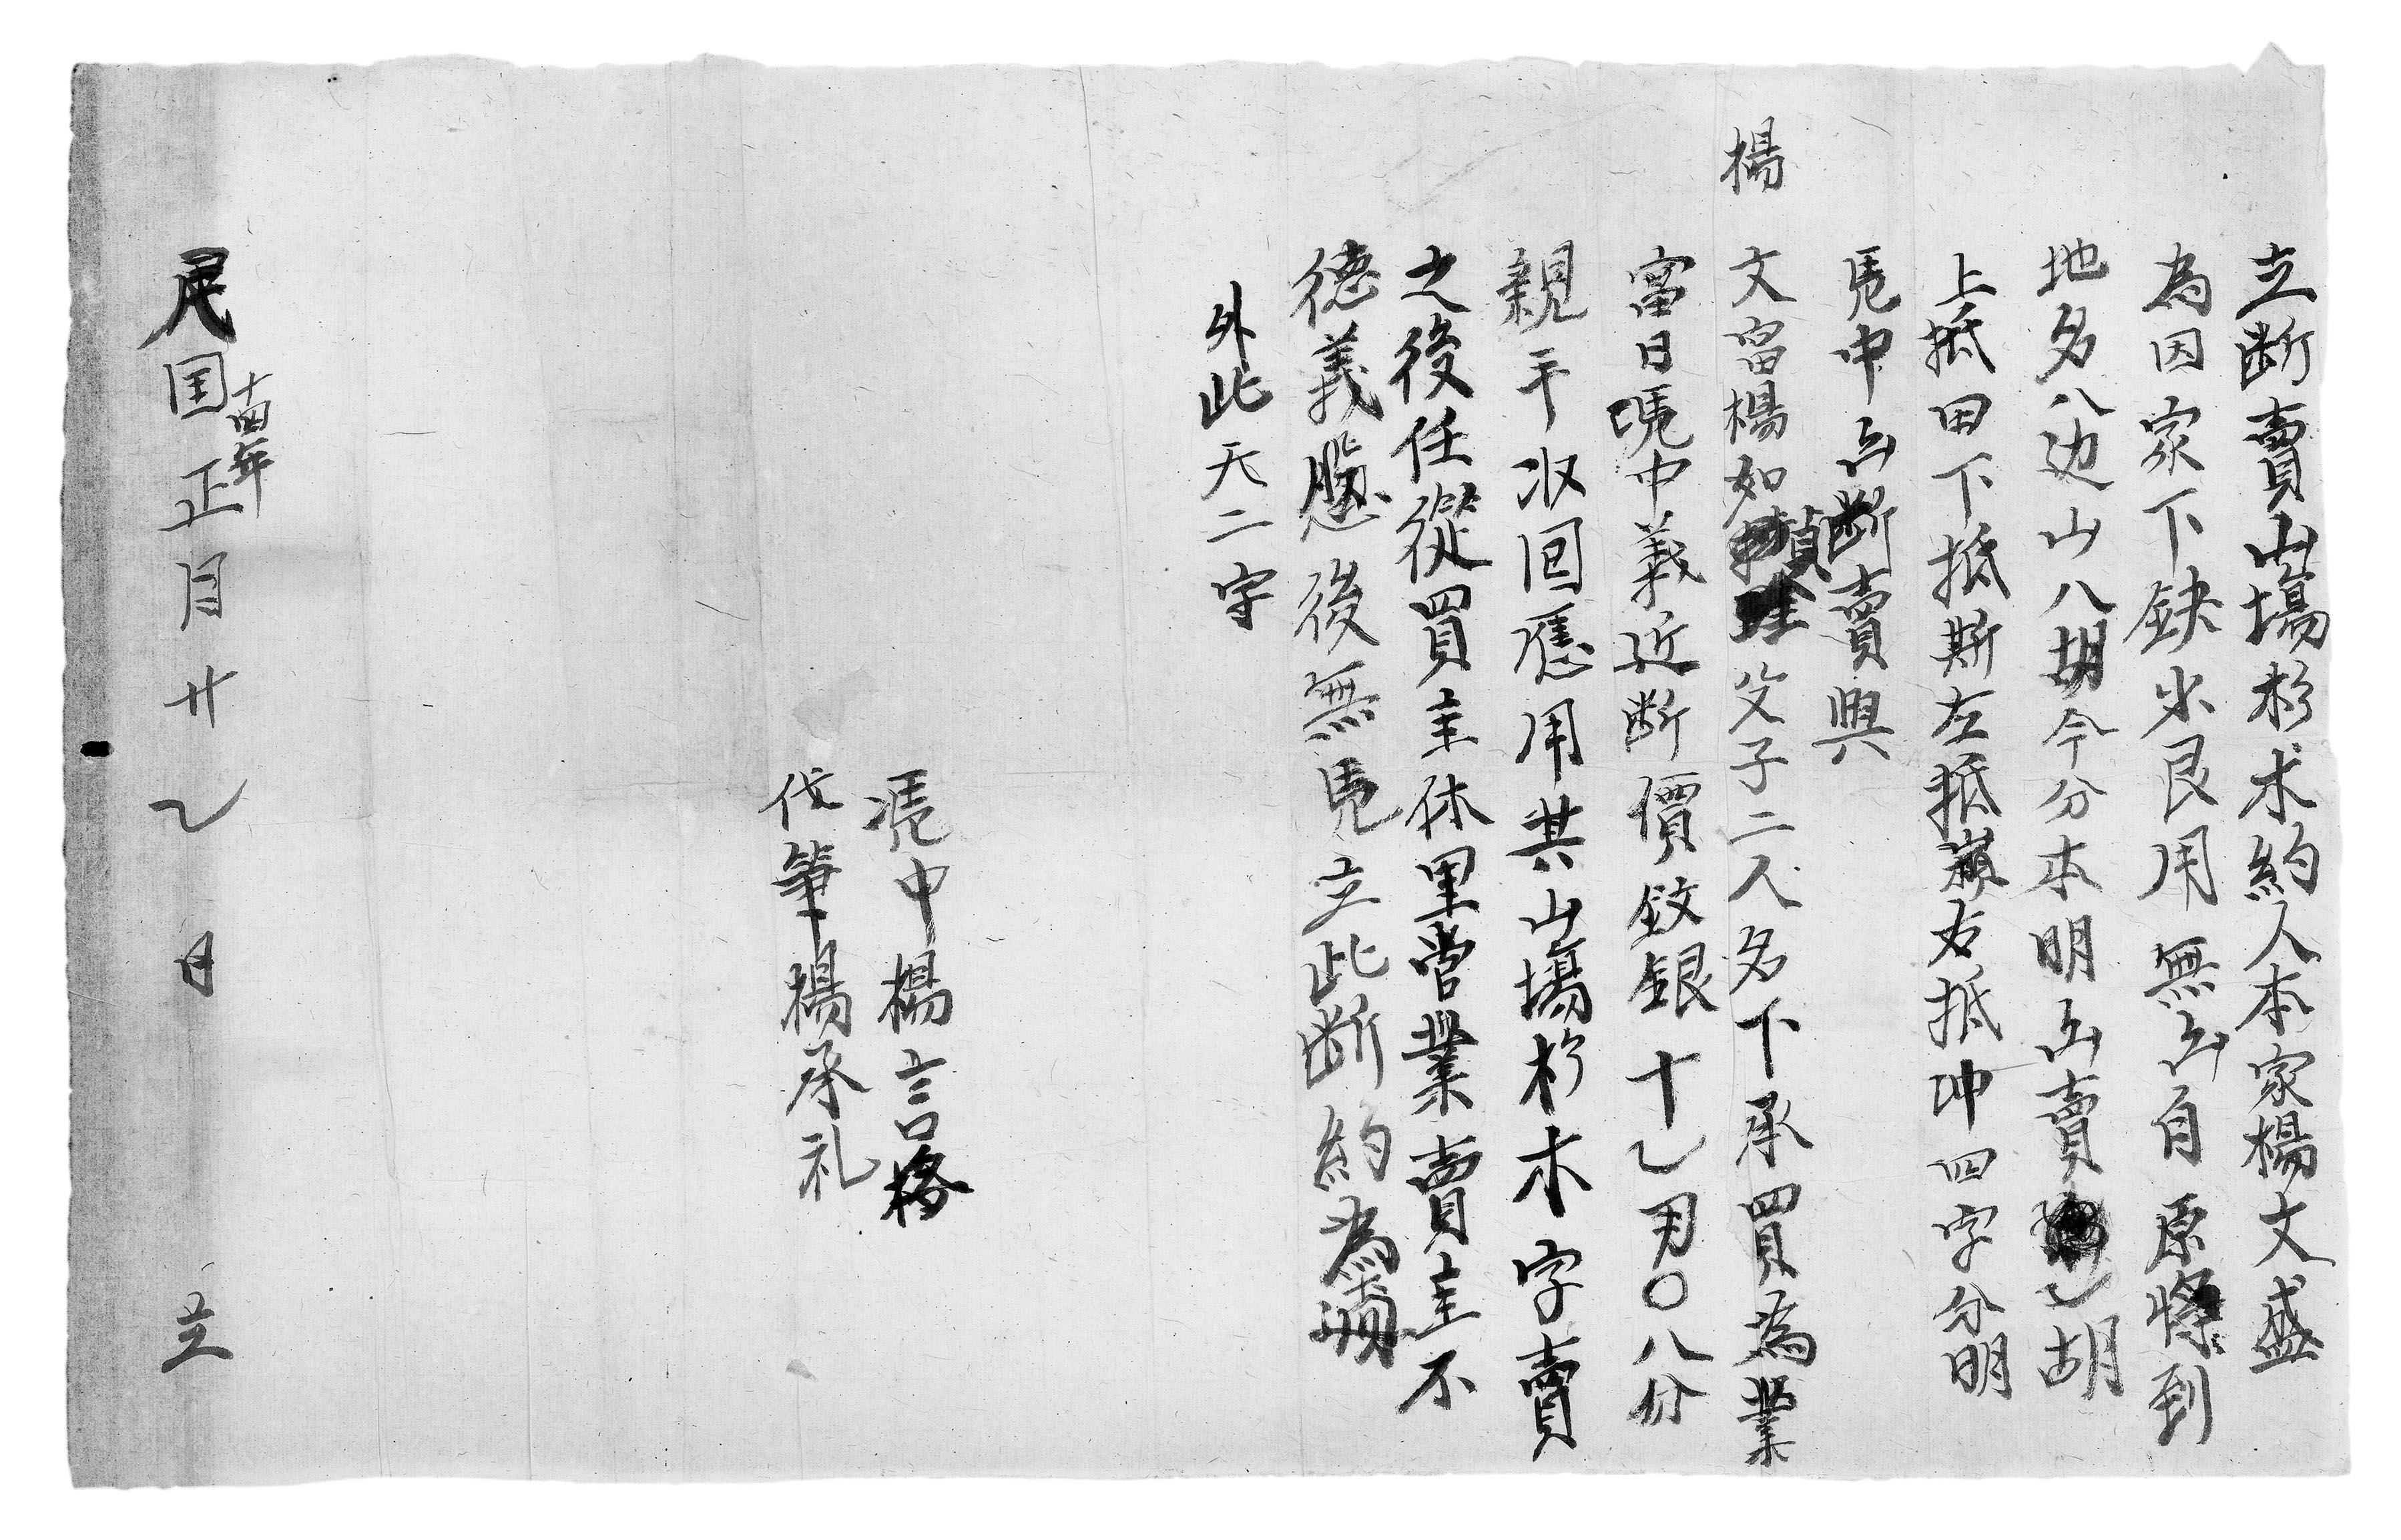 立断賣山塲杉木約人本家楊文盛
為因家下缺少艮用無出自原將到
地名八边山八胡今分本明出賣乙胡
上抵田下抵斯左抵嶺右抵冲四字分明
凴中出断賣與
楊文富楊如楨父子二人名下承買為業
當日凴中義近断價鈫銀十乙刃〇八分
親手汝回應用其山塲杉木字賣
之後任從買主休里啻業賣主不
德義悬後無凴立此断約為據
外此天二字
凴中楊言格
代筆楊承礼
民国十四年正月廿乙日立